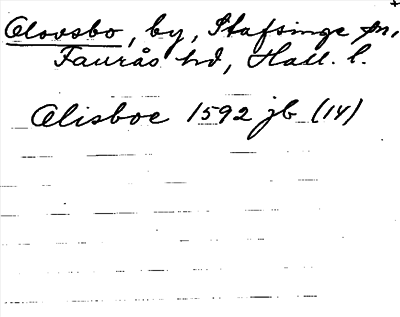 Olovsbo, by, Stafsinge sn,
Faurås hd, Hall. l.
Olisboe 1592 jb (14)